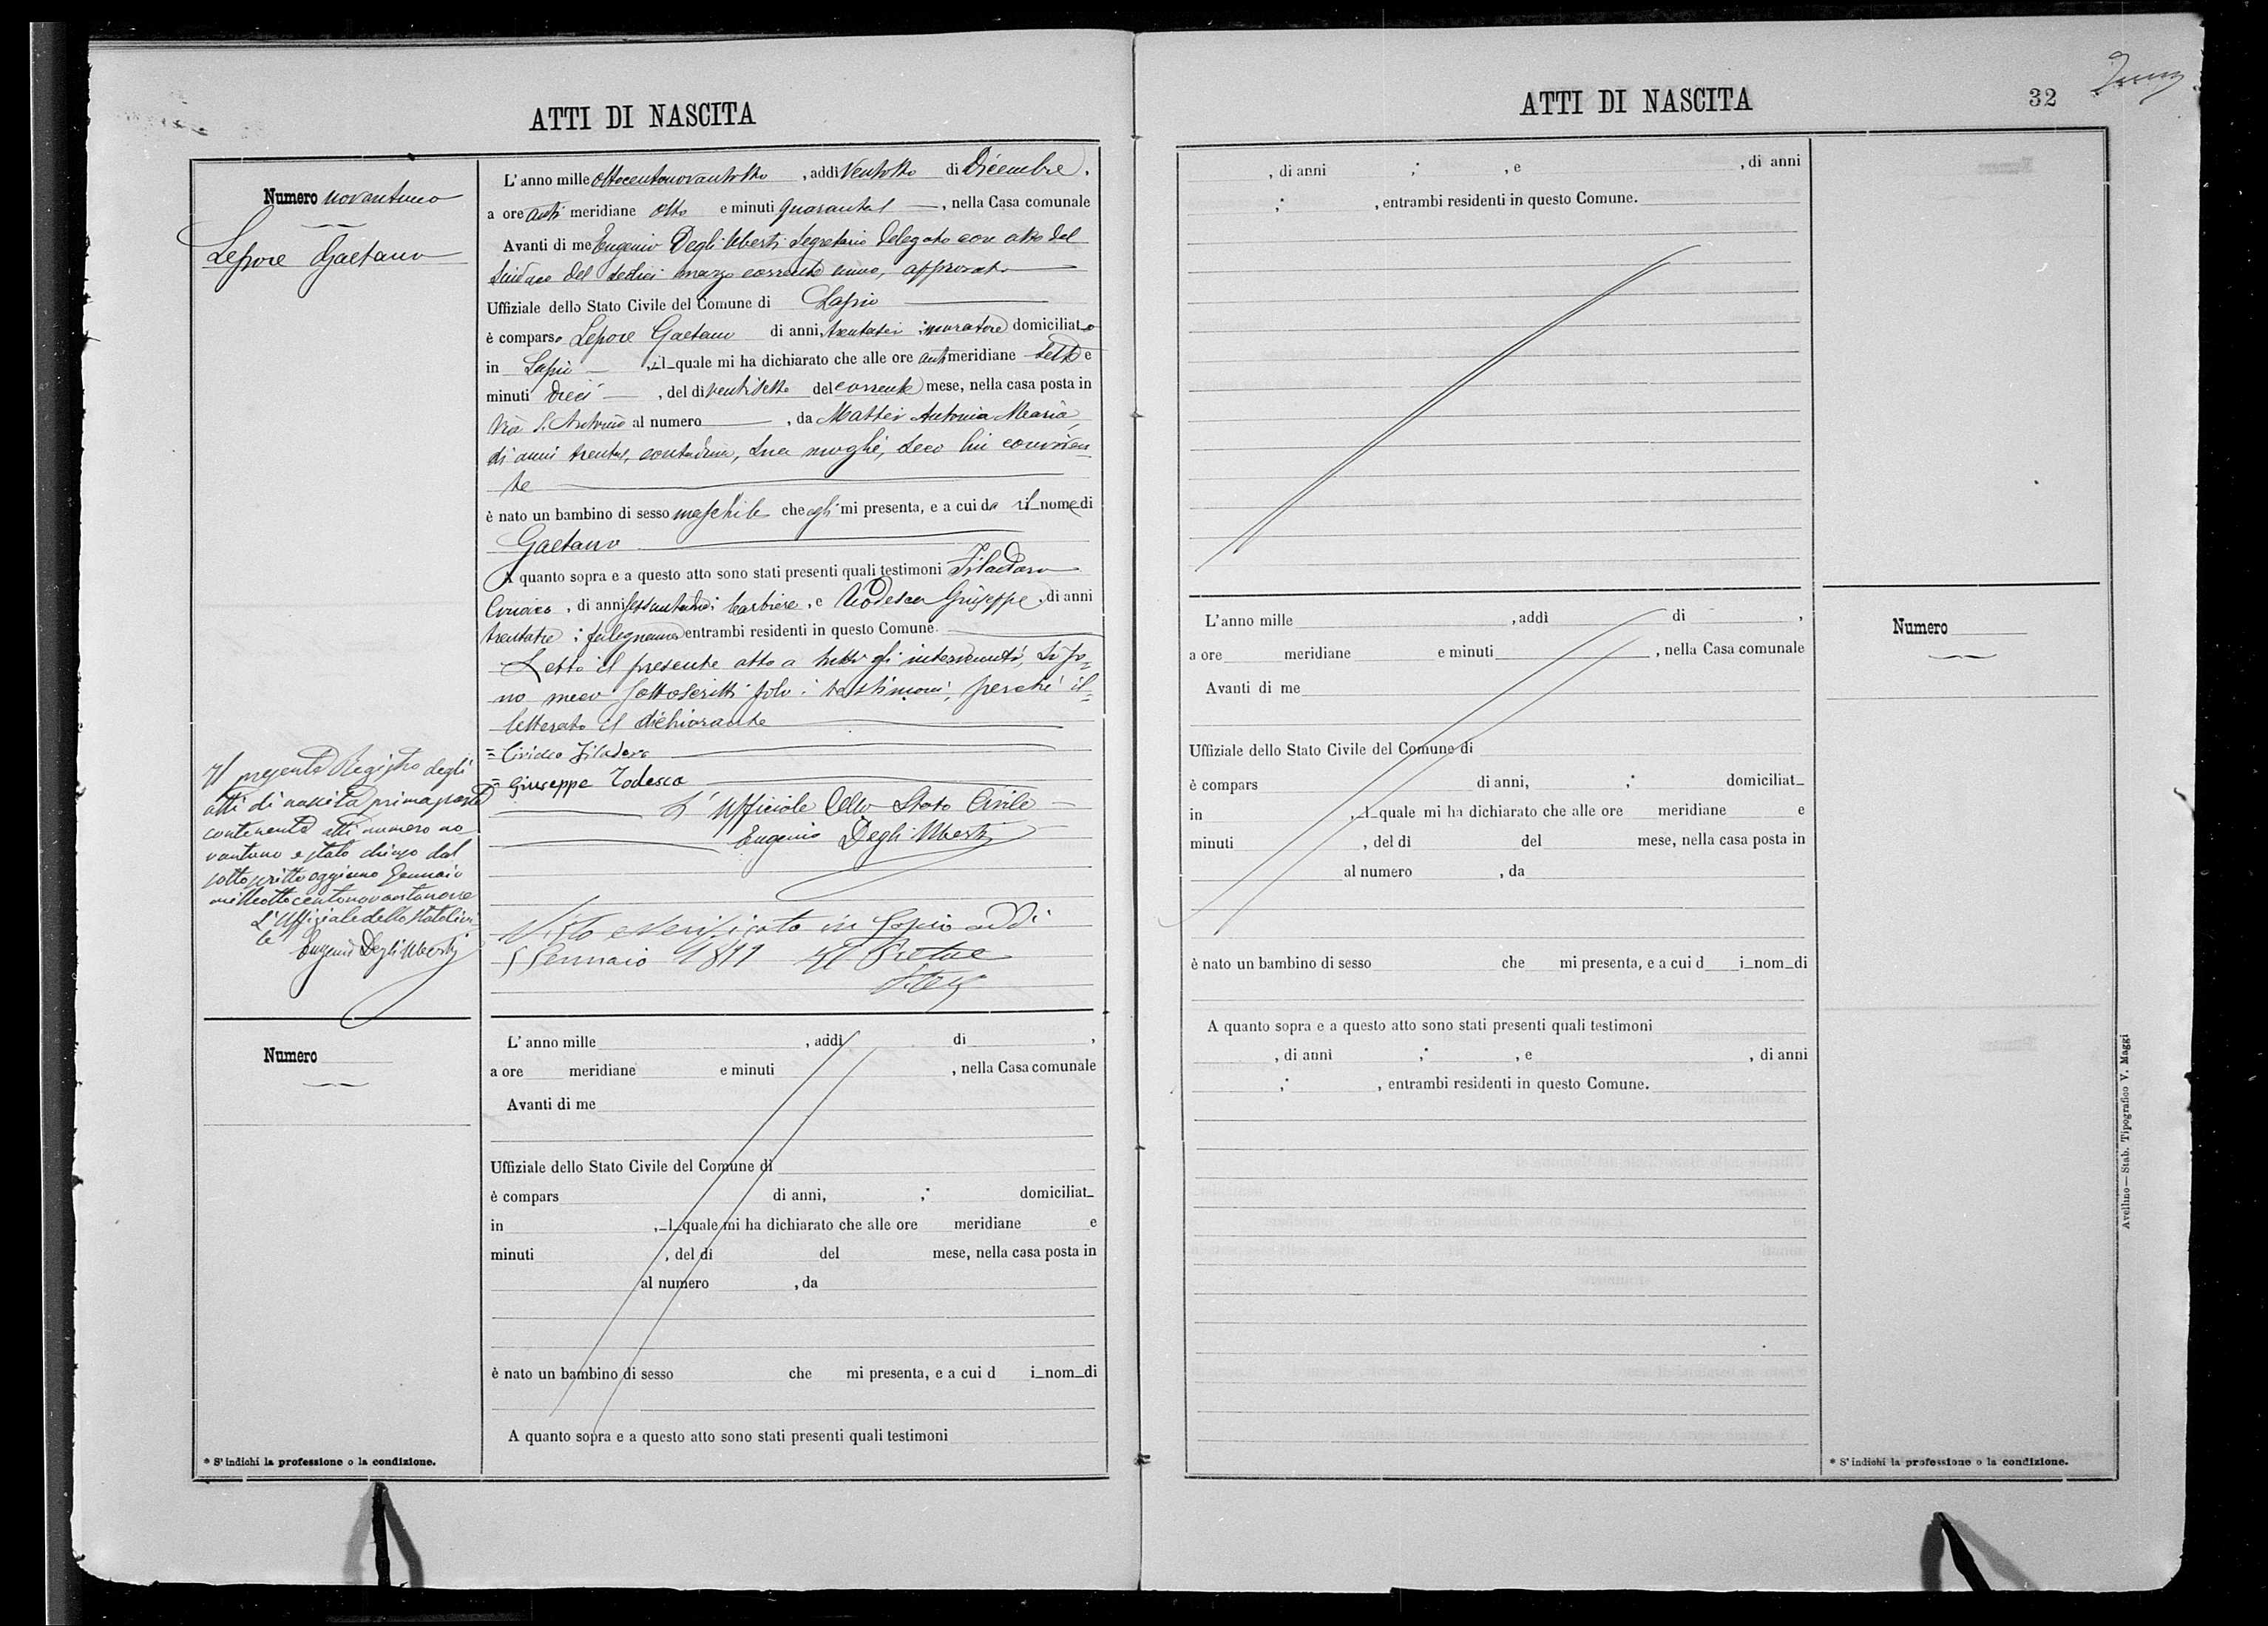 ATTI DI NASCITA
Numero novantuno
Lepore Gaetano
L'anno mille ottocentonovantotto, addì ventotto di Dicembre,
a ore anti meridiane otto e minuti quaranta, nella Casa comunale
Avanti di me Eugenio Degli Uberti Segretario delegato con atto del
Sindaco del sedici marzo corrente anno, approvato
Uffiziale dello Stato Civile del Comune di Lapio
è comparso Lepore Gaetano di anni, trentasei; muratore domiciliato
in Lapio, il quale mi ha dichiarato che alle ore antimeridiane sette e
minuti dieci, del dì ventisette del corrente mese, nella casa posta in
Via S. Antonio al numero, da Mattei Antonia Maria,
di anni trenta, contadina, sua moglie, seco lui conviven
te
è nato un bambino di sesso maschile che egli mi presenta, e a cui da il nome di
Gaetano
A quanto sopra e a questo atto sono stati presenti quali testimoni Filadoro
Ciriaco, di anni; barbiere, e Todesca Giuseppe, di anni
trentatre; falegname entrambi residenti in questo Comune.
Letto il presente atto a tutti gli intervenuti, si so=
no meco sottoscritti solo i testimoni, perché il=
letterato il dichiarante
= Ciriaco Filadoro
= Giuseppe Todesca
L'Ufficiale dello Stato Civile
Eugenio Degli Uberti
Il presente Registro degli
atti di nascita prima parte
contenente atti numero no
vantuno e stato chiuso dal
sottoscritto oggi uno Gennaio
milleottocentonovantanove
L'Uffiziale dello Stato Civi
le
Eugenio Degli Uberti
Visto e verificato in Lapio addì
5 Gennaio 1899 Il Pretore
Numero
L'anno mille, addì di,
a ore meridiane e minuti, nella Casa comunale
Avanti di me
Uffiziale dello Stato Civile del Comune di
è compars di anni, ;* domiciliat_
in, _l_quale mi ha dichiarato che alle ore meridiane e
minuti, del dì del mese, nella casa posta in
al numero, da
è nato un bambino di sesso che mi presenta, e a cui d i_nom_di
A quanto sopra e a questo atto sono stati presenti quali testimoni
* S'indichi la professione o la condizione.
ATTI DI NASCITA
32
, di anni ;, e, di anni
;*, entrambi residenti in questo Comune.
L'anno mille, addì di,
Numero
a ore meridiane e minuti, nella Casa comunale
Avanti di me
Uffiziale dello Stato Civile del Comune di
è compars di anni, ;* domiciliat_
in, _l_quale mi ha dichiarato che alle ore meridiane e
minuti, del dì del mese, nella casa posta in
al numero, da
è nato un bambino di sesso che mi presenta, e a cui d i_nom_di
A quanto sopra e a questo atto sono stati presenti quali testimoni
, di anni ;*, e, di anni
;*, entrambi residenti in questo Comune.
* S'indichi la professione o la condizione.
Avellino—Stab. Tipografico V. Maggi